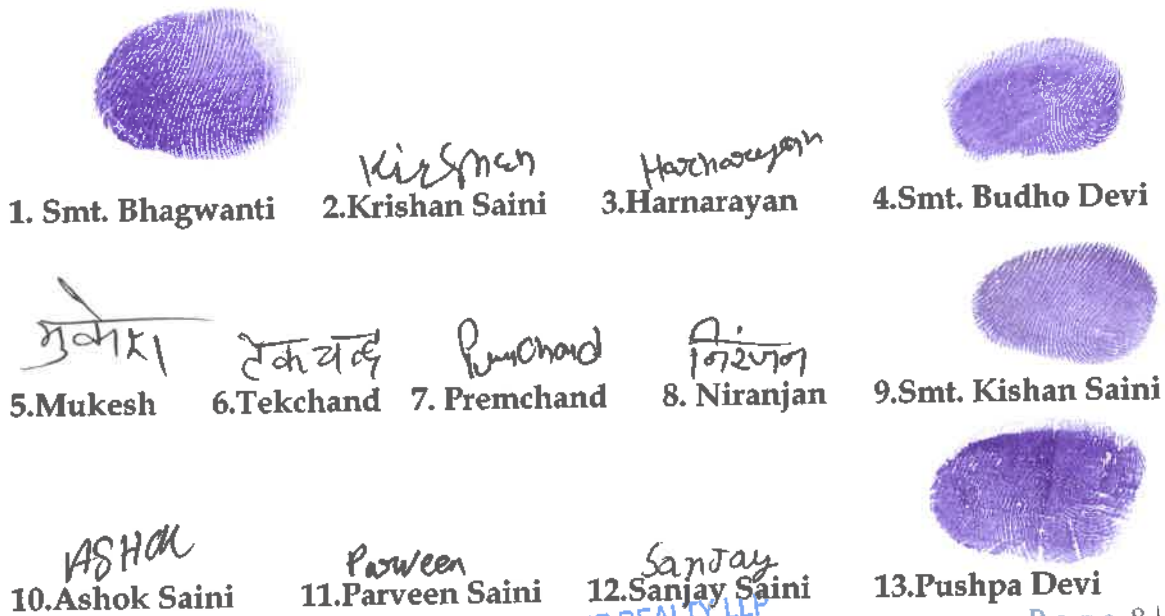 Kirshan
Harnarayan
1. Smt. Bhagwanti 2.Krishan Saini 3.Harnarayan 4.Smt. Budho Devi
मुकेश
टेकचन्द
Premchand
निरंजन
5.Mukesh 6.Tekchand 7. Premchand 8. Niranjan 9.Smt. Kishan Saini
ASHOK
Parveen
Sanjay
10.Ashok Saini 11.Parveen Saini 12.Sanjay Saini 13.Pushpa Devi
REALTY LLP